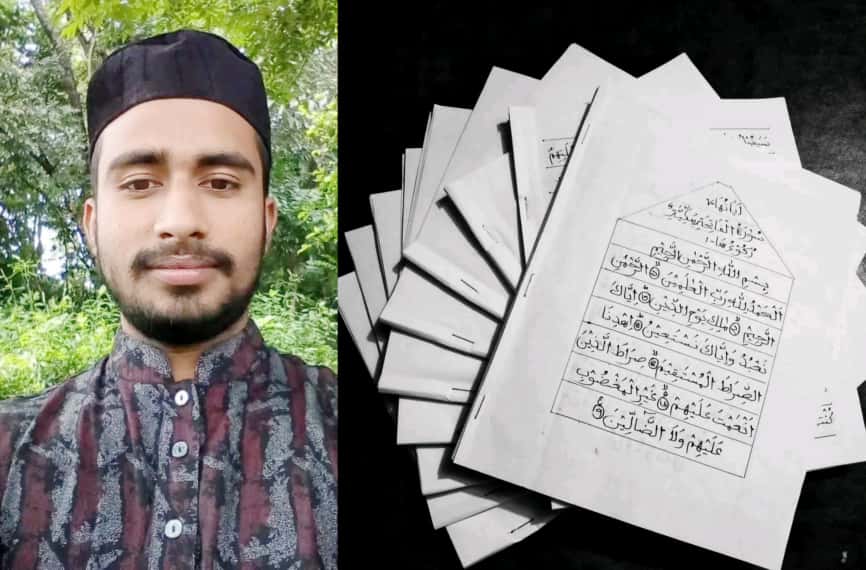 اٰيَاتُهَا ٧
سُوْرَةُ الْفَاتِحَةِ
رُكُوْعُهَا ١
بِسْمِ اللّٰهِ الرَّحْمٰنِ الرَّحِيْمِ
اَلْحَمْدُ لِلّٰهِ رَبِّ الْعٰلَمِيْنَ ۝ الرَّحْمٰنِ
الرَّحِيْمِ ۝ مٰلِكِ يَوْمِ الدِّيْنِ ۝ اِيَّاكَ
نَعْبُدُ وَاِيَّاكَ نَسْتَعِيْنُ ۝ اِهْدِنَا
الصِّرَاطَ الْمُسْتَقِيْمَ ۝ صِرَاطَ الَّذِيْنَ
اَنْعَمْتَ عَلَيْهِمْ ۝ غَيْرِ الْمَغْضُوْبِ
عَلَيْهِمْ وَلَا الضَّآلِّيْنَ ۝